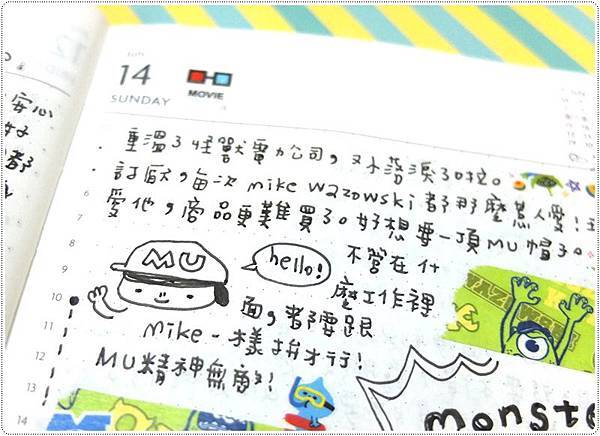 Jun
14
SUNDAY
MOVIE
重溫了怪獸電力公司，又不發淚了啦。
討厭，每次 mike wazowski 都那麼惹人愛！
愛他，商品更難買了。好想要一頂MU帽子。
MU
hello!
不管在什
麼工作裡
面，都要跟
mike一樣拚才行！
MU精神無敵！
monste
安心
好
都
6
7
8
9
10
11
12
13
14